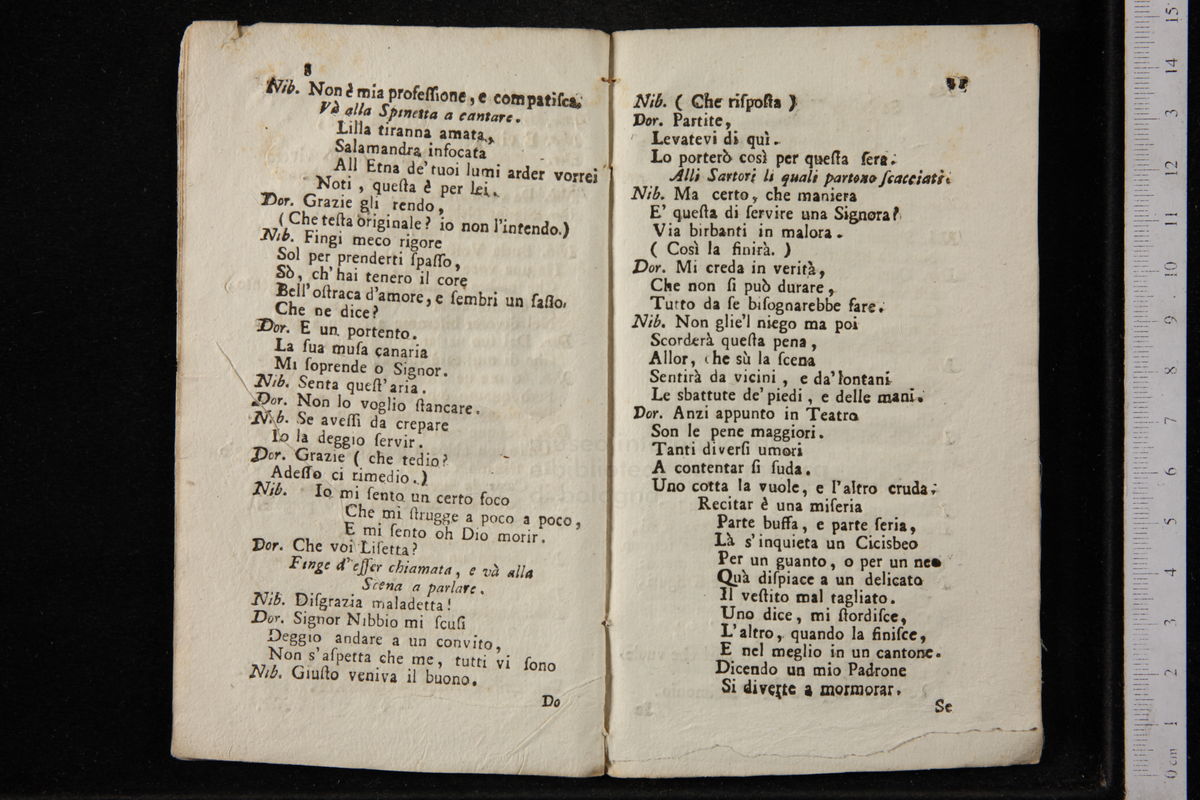 8
Nib. Non è mia profeſſione, e compatiſca.
Và alla Spinetta a cantare.
Lilla tiranna amata,
Salamandra infocata
All Etna de'tuoi lumi arder vorrei
Noti, queſta è per lei.
Dor. Grazie gli rendo,
(Che teſta originale? io non l'intendo.)
Nib. Fingi meco rigore
Sol per prenderti ſpaſſo,
Sò, ch'hai tenero il core
Bell'oſtraca d'amore, e ſembri un ſaſſo.
Che ne dice?
Dor. E un portento.
La ſua muſa canaria
Mi ſoprende o Signor.
Nib. Senta queſt'aria.
Dor. Non lo voglio ſtancare.
Nib. Se aveſſi da crepare
Io la deggio ſervir.
Dor. Grazie ( che tedio?
Adeſſo ci rimedio.)
Nib. Io mi ſento un certo foco
Che mi ſtrugge a poco a poco,
E mi ſento oh Dio morir.
Dor. Che voi Liſetta?
Finge d'eſſer chiamata, e và alla
Scena a parlare.
Nib. Diſgrazia maladetta!
Dor. Signor Nibbio mi ſcuſi
Deggio andare a un convito,
Non s'aſpetta che me, tutti vi ſono
Nib. Giuſto veniva il buono.
Do
Nib. ( Che riſpoſta )
Dor. Partite,
Levatevi di quì.
Lo porterò così per queſta ſera.
Alli Sartori li quali partono ſcacciati.
Nib. Ma certo, che maniera
E' queſta di ſervire una Signora?
Via birbanti in malora.
( Così la finirà. )
Dor. Mi creda in verità,
Che non ſi può durare,
Tutto da ſe biſognarebbe fare.
Nib. Non glie'l niego ma poi
Scorderà queſta pena,
Allor, che sù la ſcena
Sentirà da vicini, e da'lontani
Le sbattute de'piedi, e delle mani.
Dor. Anzi appunto in Teatro
Son le pene maggiori.
Tanti diverſi umori
A contentar ſi ſuda.
Uno cotta la vuole, e l'altro cruda;
Recitar è una miſeria
Parte buffa, e parte ſeria,
Là s'inquieta un Cicisbeo
Per un guanto, o per un neo
Quà diſpiace a un delicato
Il veſtito mal tagliato.
Uno dice, mi ſtordiſce,
L'altro, quando la finiſce,
E nel meglio in un cantone.
Dicendo un mio Padrone
Si diverte a mormorar.
Se